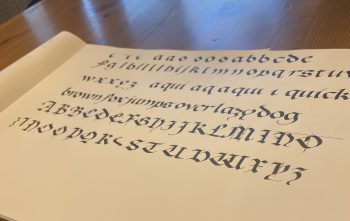 a a o o o o a b b e d e
f g h i l l l l h i j k l m n o p q r s t u v
w x x y z aqui aqaqui i quick
brown fox jumps over lazy dog
A B C D E F G H I J K L M I N O
N O P Q R S T U V W X Y Z